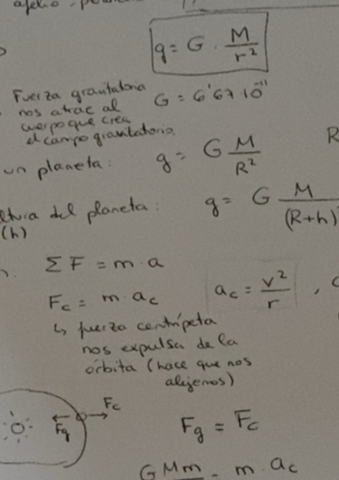 afelio
g = G · M / r²
Fuerza gravitatoria
nos atrae al
cuerpo que crea
el campo gravitatorio
G = 6'67·10⁻¹¹
un planeta: g = G M / R²
ltura del planeta: g = G M / (R+h)²
(h)
ΣF = m·a
Fc = m·ac
ac = v² / r ,
↳ fuerza centrípeta
nos expulsa de la
órbita (hace que nos
alejemos)
Fc
Fg
Fg = Fc
GMm = m·ac